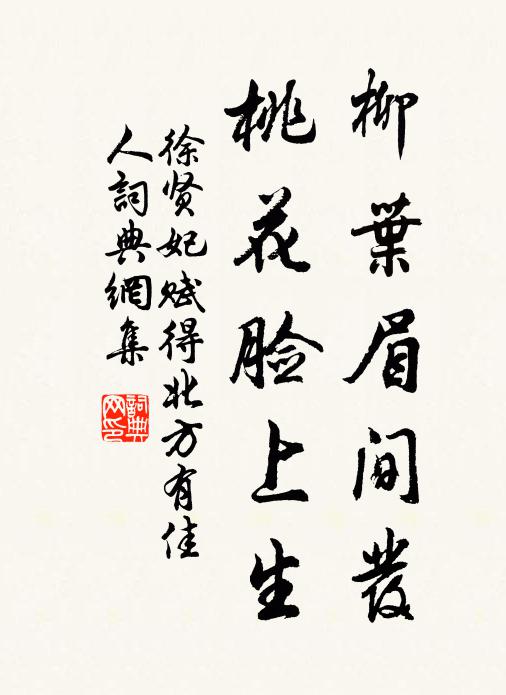 柳葉眉间發
桃花脸上生
徐贤妃赋得北方有佳
人詞典網集
詞典
网印